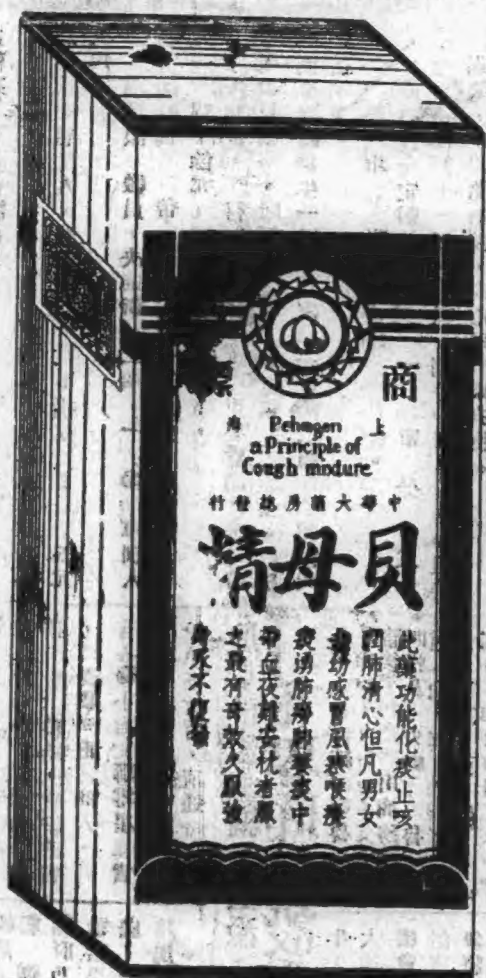 商標
上海
Pehmgen
a Principle of
Cough mixture
中華大藥房總發行
貝母精
此藥功能化痰止咳
潤肺清心但凡男女
老幼感冒風寒喉癢
痰湧肺癆肺萎痰中
帶血夜難安枕者服
之最有奇效久服強
身永不復發